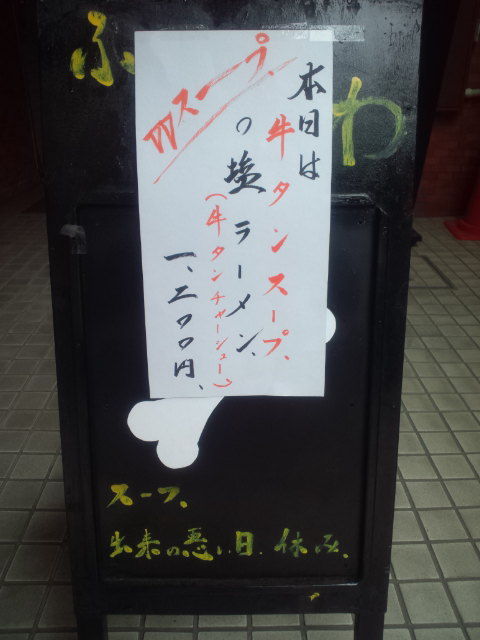 ふ わ
本日は牛タンスープ、
の塩ラーメン、
(牛タンチャーシュー)
一、二〇〇円、
Wスープ
スープ、
出来の悪い日、休み、